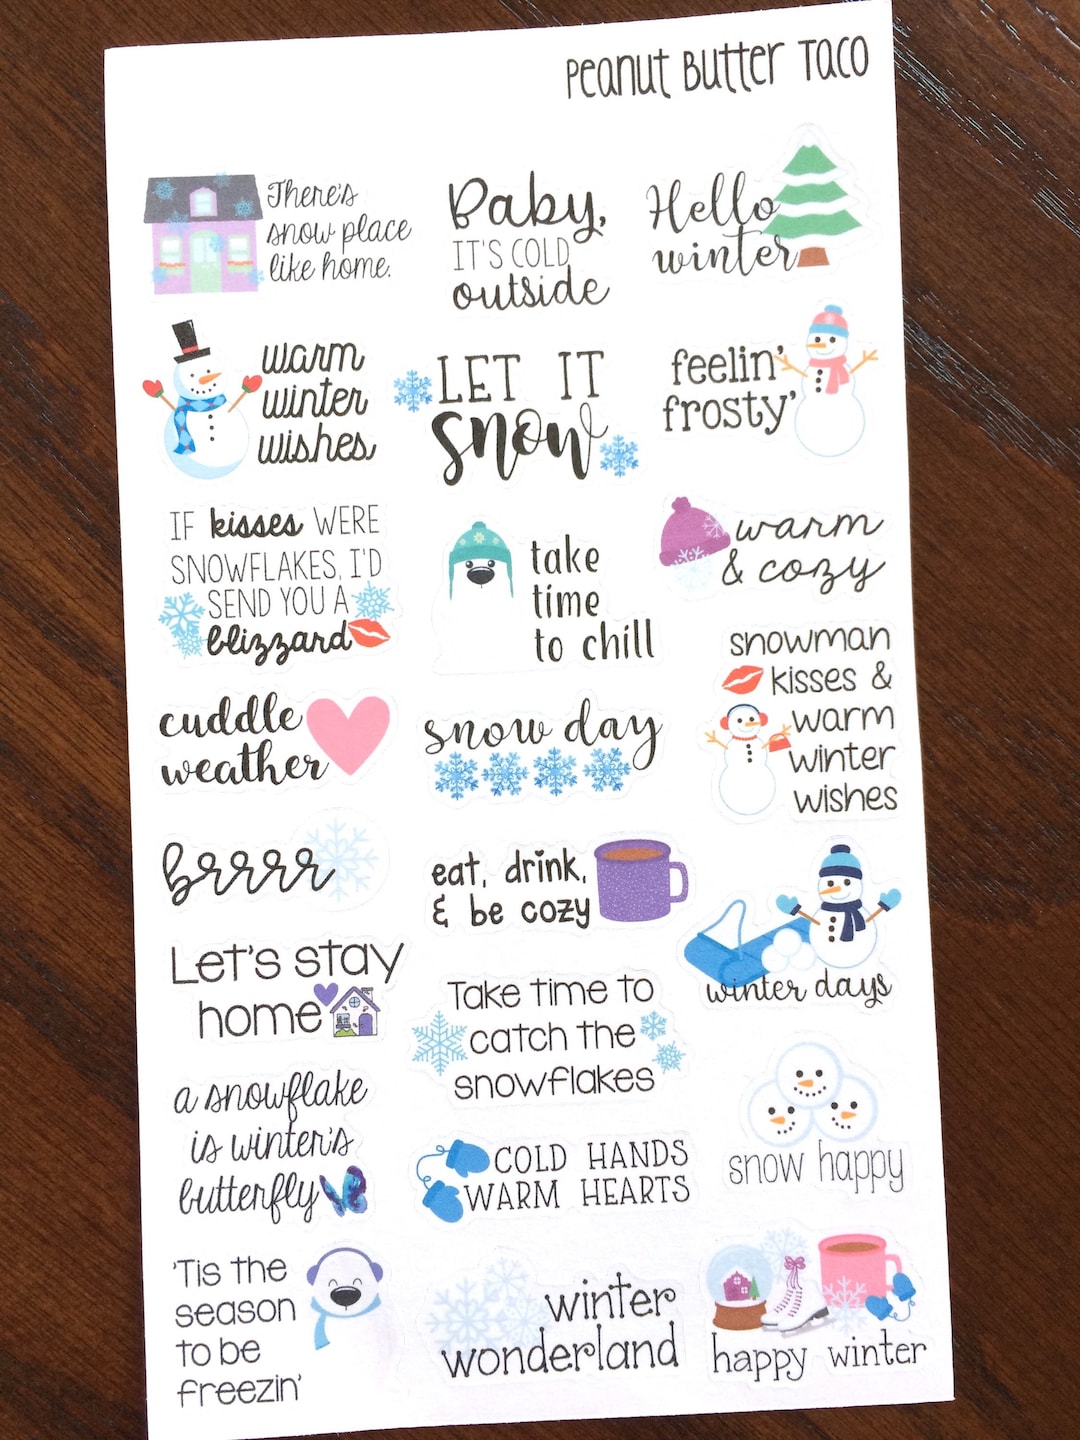 Peanut Butter Taco
There's
snow place
like home.
Baby,
IT'S COLD
outside
Hello
winter
warm
winter
wishes
LET IT
snow
feelin'
frosty'
IF kisses WERE
SNOWFLAKES, I'D
SEND YOU A
blizzard
take
time
to chill
warm
& cozy
cuddle
weather
snow day
snowman
kisses &
warm
winter
wishes
brrrr
eat, drink,
& be cozy
winter days
Let's stay
home
Take time to
catch the
snowflakes
snow happy
a snowflake
is winter's
butterfly
COLD HANDS
WARM HEARTS
'Tis the
season
to be
freezin'
winter
wonderland
happy winter